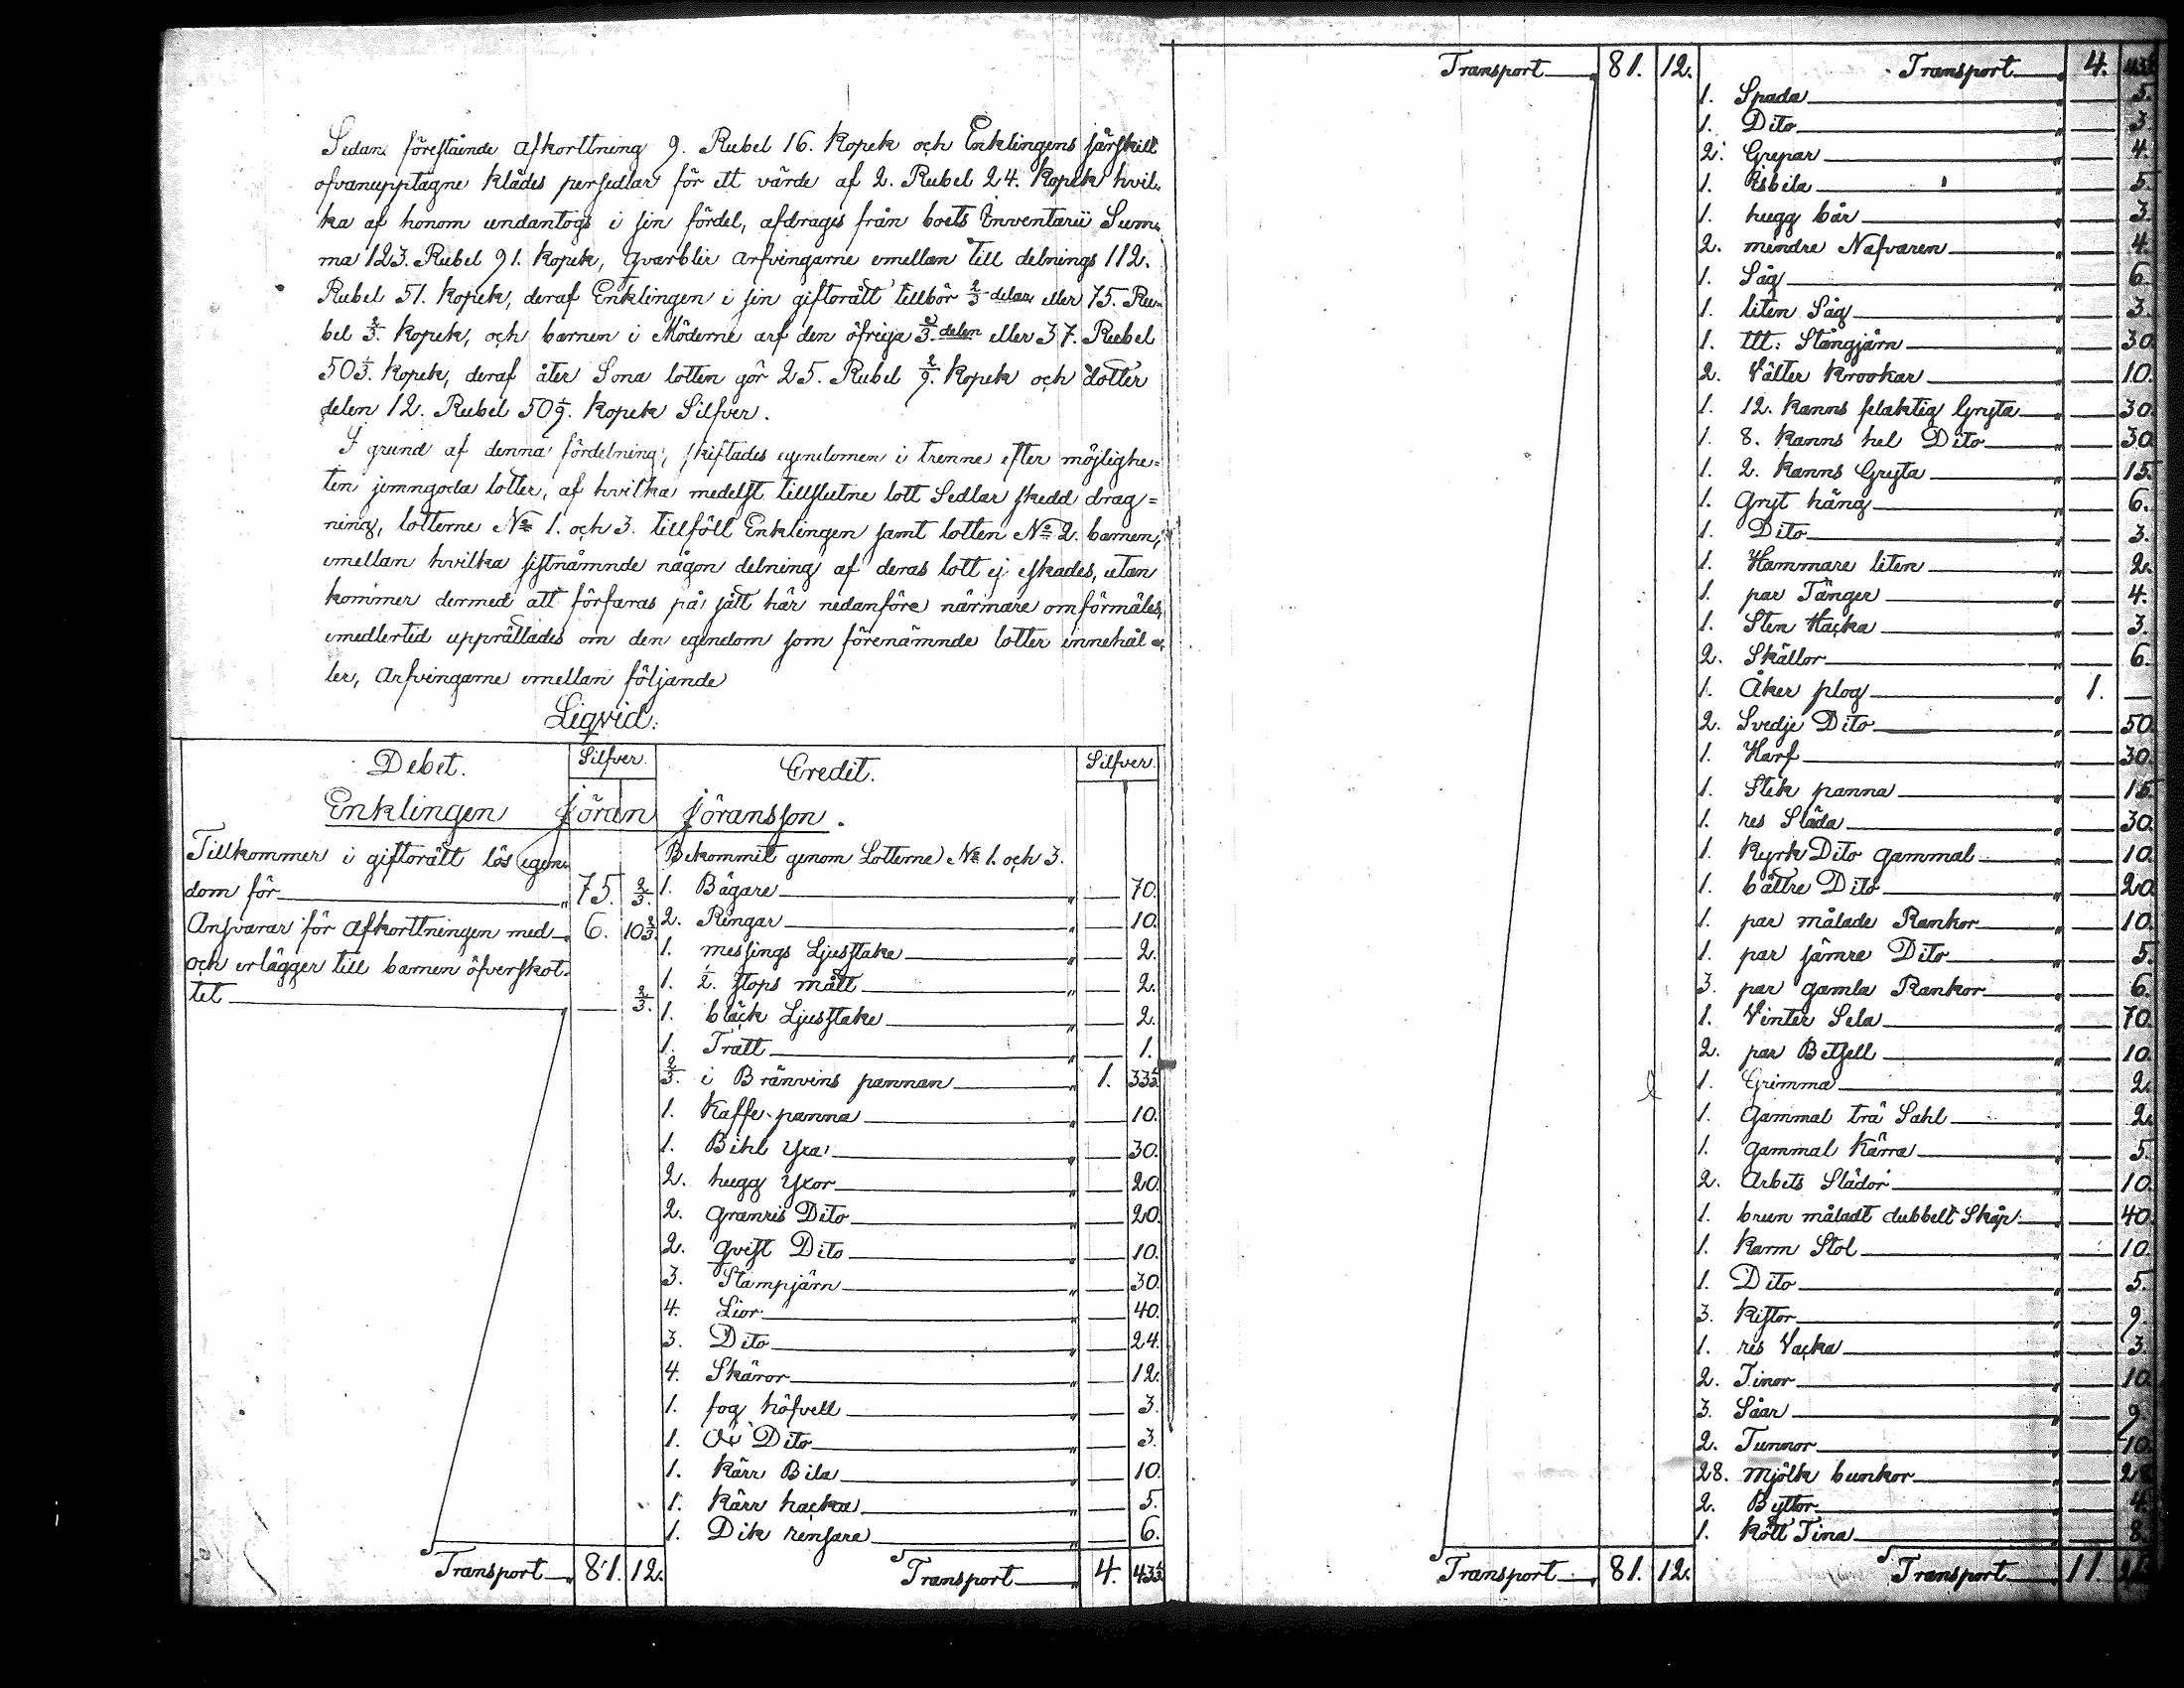 Sedan förestående afkorttning 9. Rubel 16. Kopek och Enklingens särskilt
ofvanupptagne klädes persedlar för ett värde af 2. Rubel 24. Kopek hvil-
ka af honom undantogs i sin fördel, afdrages från boets Inventarii Sum-
ma 123. Rubel 91. Kopek, qvarblir arfvingarne emellan till delnings 112.
Rubel 51. Kopek, deraf Enklingen i sin giftorätt tillhör 2/3 delar eller 75. Ru-
bel 2/3. Kopek, och barnen i Möderne arf den öfriga 3. delen eller 37. Rubel
50 1/3. Kopek, deraf åter Sona lotten gör 25. Rubel 2/9. Kopek och dotter
delen 12. Rubel 50 1/9. Kopek Silfver.
I grund af denna fördelning, skiftades egendomen i trenne efter möjlighe=
ten jemngoda lotter, af hvilka medelst tillslutne lott Sedlar skedd drag=
ning, lotterne No 1. och 3. tillföll Enklingen samt lotten No 2. barnen,
emellan hvilka sistnämnde någon delning af deras lott ej eskades, utan
kommer dermed att förfaras på sätt här nedanföre närmare omförmäles,
emedlertid upprättades om den egendom som förenämnde lotter innehål-
ler, Arfvingarne emellan följande
Liqvid:
Debet. Silfver. Credit. Silfver.
Enklingen Jöran Jöransson.
Tillkommer i giftorätt lös egen-
dom för 75. 2/3.
Ansvarar för afkorttningen med 6. 10 2/3.
och erlägger till barnen öfverskot-
tet — 2/3.
Transport 81. 12.
Bekommit genom Lotterne No 1. och 3.
1. Bägare — 70.
2. Ringar — 10.
1. messings Ljusstake — 2.
1. 1/2. stops mått — 2.
1. bläck Ljusstake — 2.
1. Tratt — 1.
2/3. i Bränvins pannan 1. 33 1/3.
1. Kaffe panna — 10.
1. Bihl Yxa — 30.
2. hugg Yxor — 20.
2. granris Dito — 20.
2. qvist Dito — 10.
3. Stampjärn — 30.
4. Lior — 40.
3. Dito — 24.
4. Skäror — 12.
1. fog höfvell — 3.
1. Ox Dito — 3.
1. Kärr Bila — 10.
1. Kärr hacka — 5.
1. Dik rensare — 6.
Transport 4. 43 1/3
Transport 81. 12.
Transport 81. 12.
Transport 4. 43 1/3
1. Spada — 5.
1. Dito — 3.
2. Grepar — 4.
1. Isbila — 5.
1. hugg bår — 3.
2. mindre Nafvaren — 4.
1. Såg — 6.
1. liten Såg — 3.
1. ttt: Stångjärn — 30.
2. Välter Krookar — 10.
1. 12. Kanns felaktig Gryta — 30.
1. 8. Kanns hel Dito — 30.
1. 2. Kanns Gryta — 15.
1. Gryt häng — 6.
1. Dito — 3.
1. Hammare liten — 2.
1. par Tänger — 4.
1. Sten Hacka — 3.
2. Skällor — 6.
1. Åker plog 1. —
2. Svedje Dito — 50.
1. Harf — 30.
1. Stek panna — 15.
1. res Släda — 30.
1. Kyrk Dito gammal — 10.
1. bättre Dito — 20.
1. par målade Rankor — 10.
1. par sämre Dito — 5.
3. par gamla Rankor — 6.
1. Vinter Sela — 70.
2. par Betsell — 10.
1. Grimma — 2.
1. Gammal trä Sahl — 2.
1. gammal Kärra — 5.
2. Arbets Slädor — 10.
1. brun måladt dubbelt Skåp — 40.
1. Karm Stol — 10.
1. Dito — 5.
3. Kistor — 9.
1. res Vacka — 3.
2. Tinor — 10.
3. Såar — 9.
2. Tunnor — 10.
28. mjölk bunkor — 28.
2. Byttor — 4.
1. Kött Tina — 8.
Transport 11.